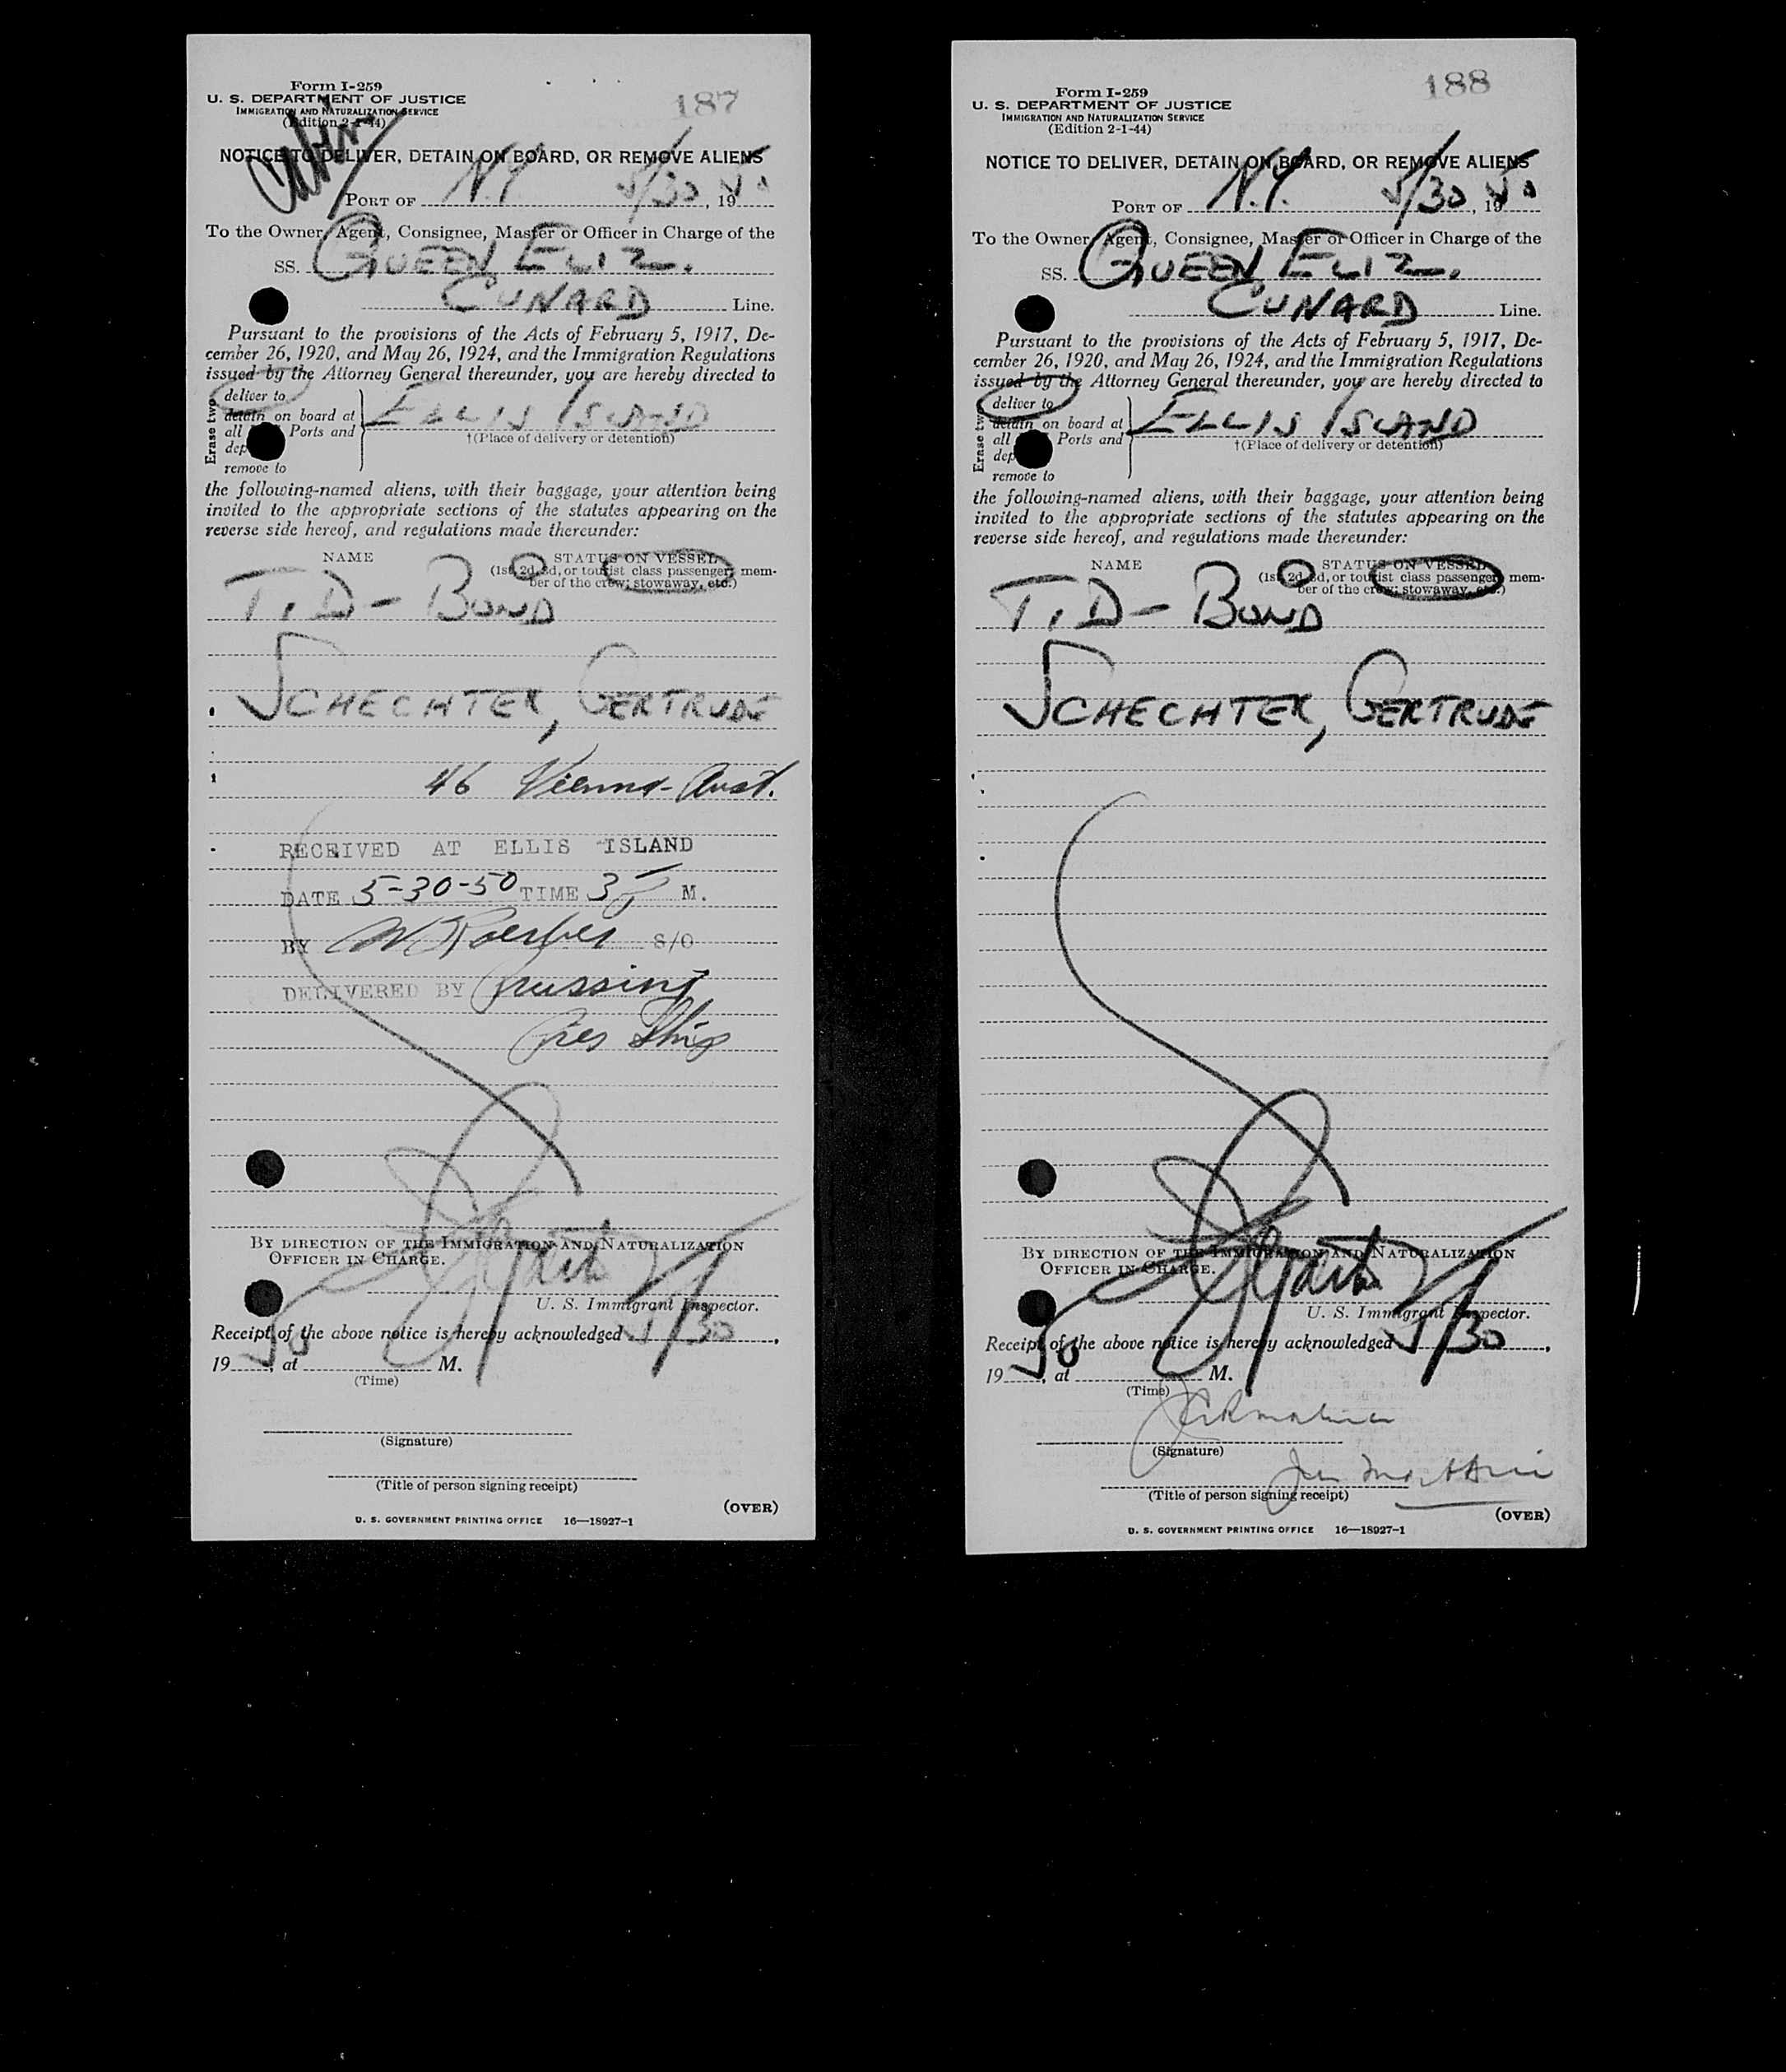 Form I-259
U. S. DEPARTMENT OF JUSTICE
IMMIGRATION AND NATURALIZATION SERVICE
(Edition 2-1-44)
187
NOTICE TO DELIVER, DETAIN ON BOARD, OR REMOVE ALIENS
PORT OF N.Y. 5/30, 1950
To the Owner, Agent, Consignee, Master or Officer in Charge of the
SS. QUEEN ELIZ.
CUNARD Line.
Pursuant to the provisions of the Acts of February 5, 1917, De-
cember 26, 1920, and May 26, 1924, and the Immigration Regulations
issued by the Attorney General thereunder, you are hereby directed to
Erase two
deliver to
detain on board at
all Ports and
dep
remove to
ELLIS ISLAND
†(Place of delivery or detention)
the following-named aliens, with their baggage, your attention being
invited to the appropriate sections of the statutes appearing on the
reverse side hereof, and regulations made thereunder:
NAME
STATUS ON VESSEL
(1st, 2d, 3d, or tourist class passenger; mem-
ber of the crew; stowaway, etc.)
T.D - BOND
SCHECHTER, GERTRUDE
46 Vienna-Aust.
RECEIVED AT ELLIS ISLAND
DATE 5-30-50 TIME 3 M.
BY S/O
DELIVERED BY
BY DIRECTION OF THE IMMIGRATION AND NATURALIZATION
OFFICER IN CHARGE.
U. S. Immigrant Inspector.
Receipt of the above notice is hereby acknowledged 5/30,
1950, at M.
(Time)
(Signature)
(Title of person signing receipt)
(OVER)
U. S. GOVERNMENT PRINTING OFFICE 16—18927-1
Form I-259
U. S. DEPARTMENT OF JUSTICE
IMMIGRATION AND NATURALIZATION SERVICE
(Edition 2-1-44)
188
NOTICE TO DELIVER, DETAIN ON BOARD, OR REMOVE ALIENS
PORT OF N.Y. 5/30, 1950
To the Owner, Agent, Consignee, Master or Officer in Charge of the
SS. QUEEN ELIZ.
CUNARD Line.
Pursuant to the provisions of the Acts of February 5, 1917, De-
cember 26, 1920, and May 26, 1924, and the Immigration Regulations
issued by the Attorney General thereunder, you are hereby directed to
Erase two
deliver to
detain on board at
all Ports and
dep
remove to
ELLIS ISLAND
†(Place of delivery or detention)
the following-named aliens, with their baggage, your attention being
invited to the appropriate sections of the statutes appearing on the
reverse side hereof, and regulations made thereunder:
NAME
STATUS ON VESSEL
(1st, 2d, 3d, or tourist class passenger; mem-
ber of the crew; stowaway, etc.)
T.D - BOND
SCHECHTER, GERTRUDE
BY DIRECTION OF THE IMMIGRATION AND NATURALIZATION
OFFICER IN CHARGE.
U. S. Immigrant Inspector.
Receipt of the above notice is hereby acknowledged 5/30,
1950, at M.
(Time)
(Signature)
(Title of person signing receipt)
(OVER)
U. S. GOVERNMENT PRINTING OFFICE 16—18927-1